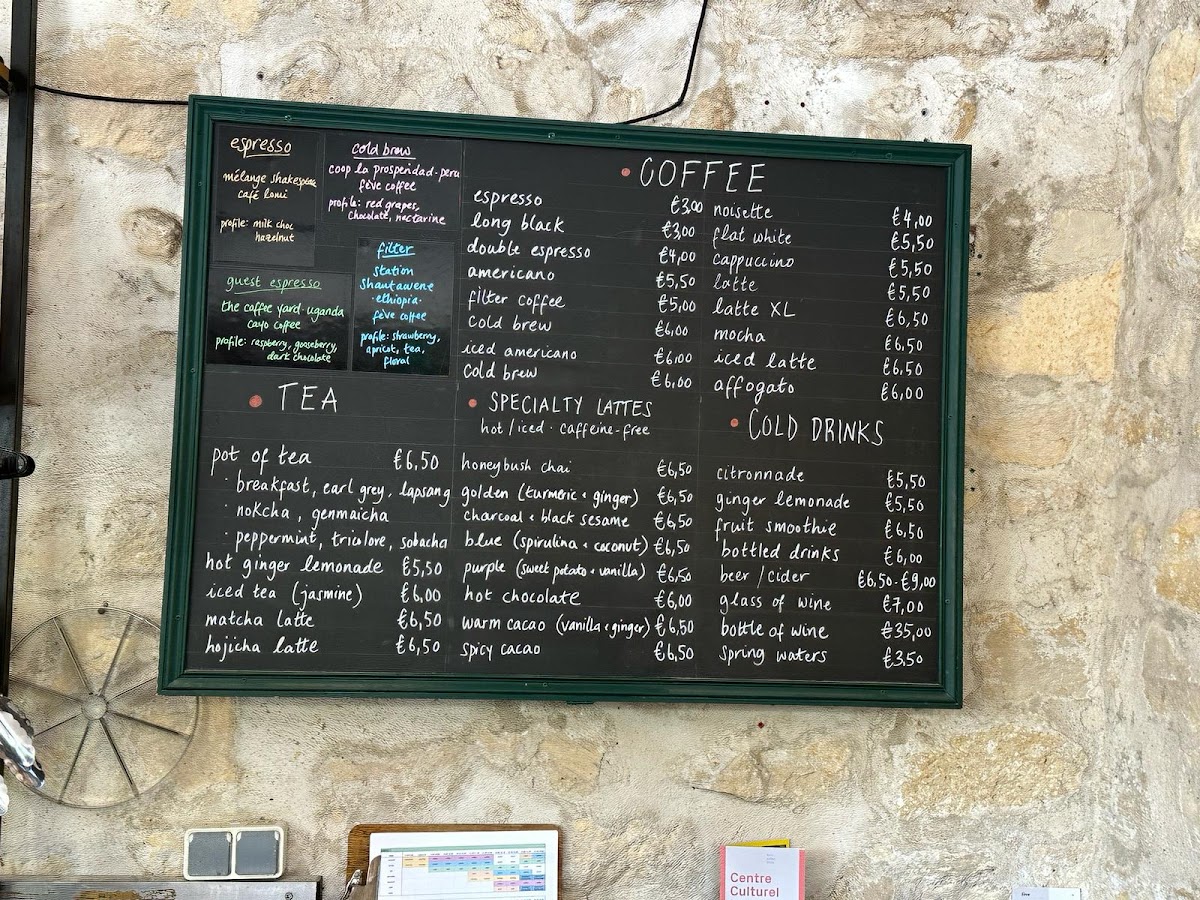 espresso
mélange shakespeare
café lomi
profile: milk choc
hazelnut
cold brew
coop la prosperidad-peru
fève coffee
profile: red grapes,
chocolate, nectarine
guest espresso
the coffee yard-uganda
cayo coffee
profile: raspberry, gooseberry,
dark chocolate
filter
station
shantawene
·ethiopia·
fève coffee
profile: strawberry,
apricot, tea,
floral
COFFEE
espresso €3,00
long black €3,00
double espresso €4,00
americano €5,50
filter coffee €5,00
cold brew €6,00
iced americano €6,00
cold brew €6,00
noisette €4,00
flat white €5,50
cappuccino €5,50
latte €5,50
latte XL €6,50
mocha €6,50
iced latte €6,50
affogato €6,00
TEA
pot of tea €6,50
· breakfast, earl grey, lapsang
· nokcha, genmaicha
· peppermint, tricolore, sobacha
hot ginger lemonade €5,50
iced tea (jasmine) €6,00
matcha latte €6,50
hojicha latte €6,50
SPECIALTY LATTES
hot/iced · caffeine-free
honeybush chai €6,50
golden (turmeric + ginger) €6,50
charcoal + black sesame €6,50
blue (spirulina + coconut) €6,50
purple (sweet potato + vanilla) €6,50
hot chocolate €6,00
warm cacao (vanilla + ginger) €6,50
spicy cacao €6,50
COLD DRINKS
citronnade €5,50
ginger lemonade €5,50
fruit smoothie €6,50
bottled drinks €6,00
beer/cider €6,50-€9,00
glass of wine €7,00
bottle of wine €35,00
spring waters €3,50
Centre
Culturel